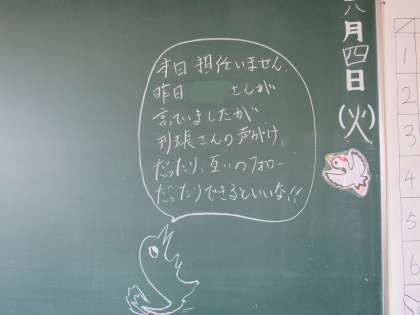 六月四日(火)
本日 担任いません。
昨日 さんが
言っていましたが
列長さんの声かけ
だったり、互いのフォロー
だったりできるといいな!!
1
2
3
4
5
6